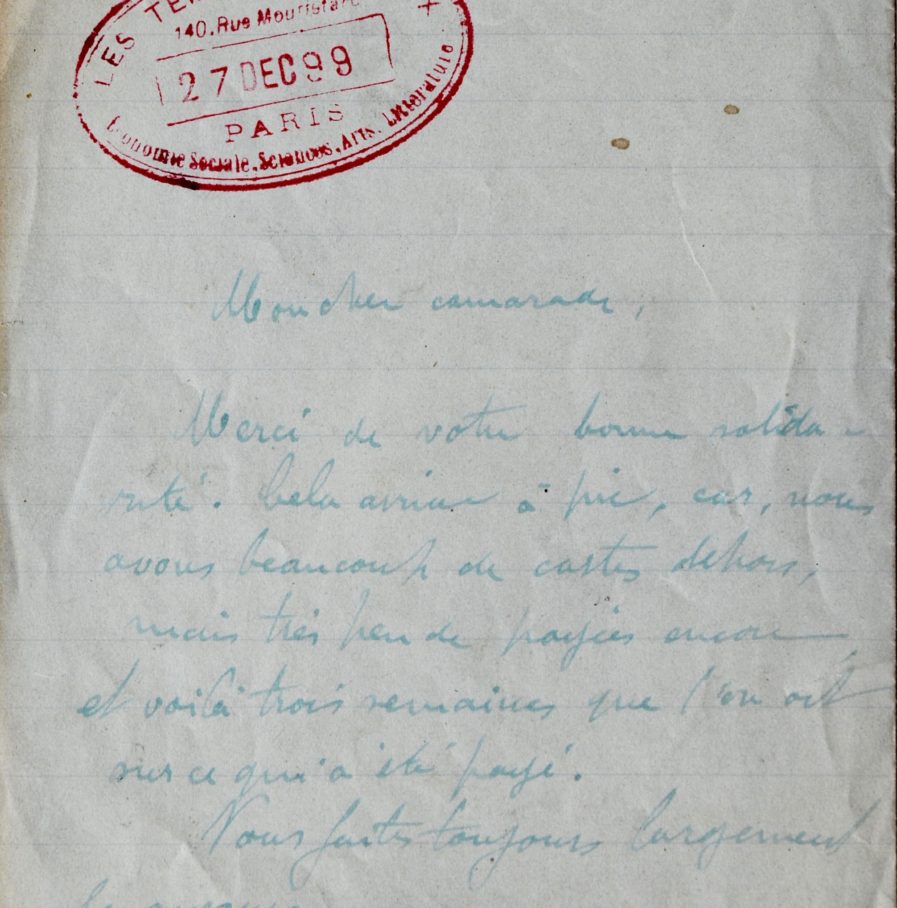 LES TE
140, Rue Mouffetard
27 DEC 99
PARIS
Economie Sociale, Sciences, Arts, Littérature
Mon cher camarade,
Merci de votre bonne solida-
rité. Cela arrive à pic, car, nous
avons beaucoup de cartes dehors,
mais très peu de payées encore,
et voilà trois semaines que l'on vit
sur ce qui a été payé.
Vous faites toujours largement